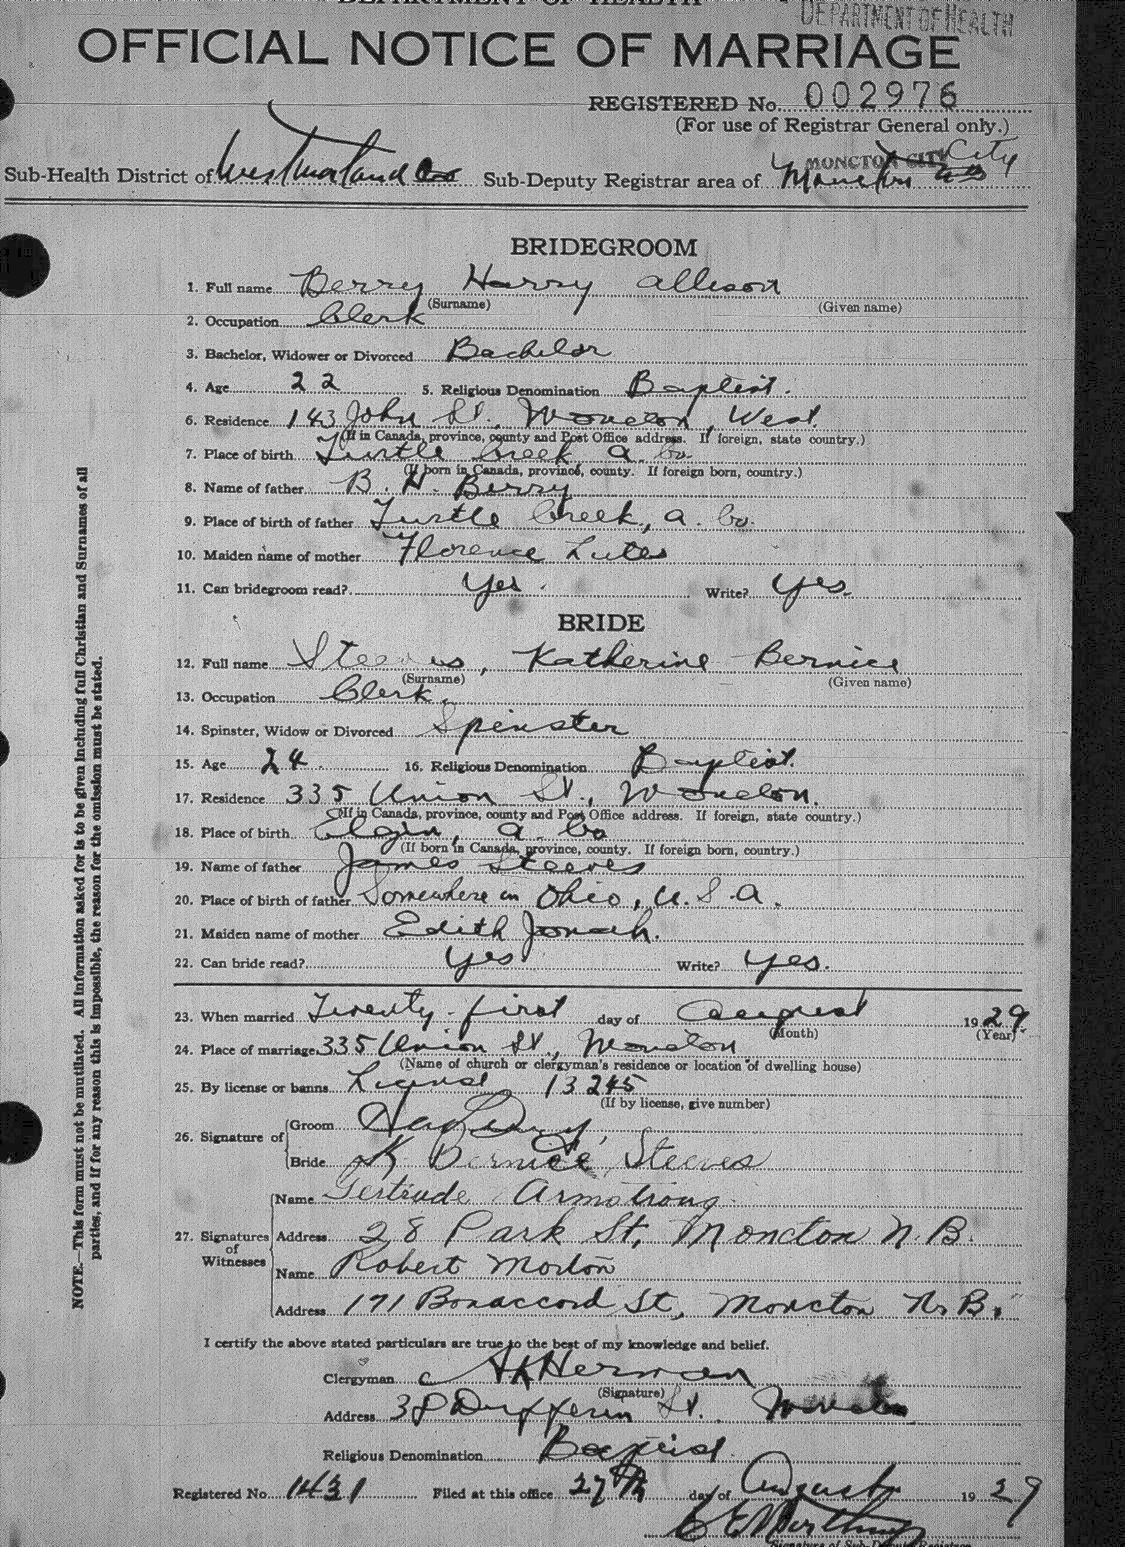 DEPARTMENT OF HEALTH
DEPARTMENT OF HEALTH
OFFICIAL NOTICE OF MARRIAGE
REGISTERED No. 002976
(For use of Registrar General only.)
MONCTON CITY City
Sub-Health District of Westmorland Co Sub-Deputy Registrar area of Moncton
BRIDEGROOM
1. Full name Berry Harry Allison
(Surname) (Given name)
2. Occupation Clerk
3. Bachelor, Widower or Divorced Bachelor
4. Age 22 5. Religious Denomination Baptist.
6. Residence 143 John St., Moncton, West.
(If in Canada, province, county and Post Office address. If foreign, state country.)
7. Place of birth Turtle Creek a. Co.
(If born in Canada, province, county. If foreign born, country.)
8. Name of father B. H. Berry
9. Place of birth of father Turtle Creek, a. Co.
10. Maiden name of mother Florence Lutes
11. Can bridegroom read? Yes. Write? Yes.
BRIDE
12. Full name Steeves, Katherine Bernice
(Surname) (Given name)
13. Occupation Clerk
14. Spinster, Widow or Divorced Spinster
15. Age 24. 16. Religious Denomination Baptist.
17. Residence 335 Union St., Moncton.
(If in Canada, province, county and Post Office address. If foreign, state country.)
18. Place of birth Elgin, a. Co
(If born in Canada, province, county. If foreign born, country.)
19. Name of father James Steeves
20. Place of birth of father Somewhere in Ohio, U.S.A.
21. Maiden name of mother Edith Jonah.
22. Can bride read? Yes Write? Yes.
23. When married Twenty-first day of August 1929
(Month) (Year)
24. Place of marriage 335 Union St., Moncton
(Name of church or clergyman's residence or location of dwelling house)
25. By license or banns License 13245
(If by license, give number)
26. Signature of Groom Berry
Bride K Bernice Steeves
27. Signatures of Witnesses Name Gertrude Armstrong
Address 28 Park St, Moncton N.B.
Name Robert Morton
Address 171 Bonaccord St, Moncton N.B.
I certify the above stated particulars are true to the best of my knowledge and belief.
Clergyman Herman
(Signature)
Address 38 Dufferin St. Moncton
Religious Denomination Baptist.
Registered No. 1431 Filed at this office 27th day of August 1929
NOTE.—This form must not be mutilated. All information asked for is to be given including full Christian and Surnames of all
parties, and if for any reason this is impossible, the reason for the omission must be stated.